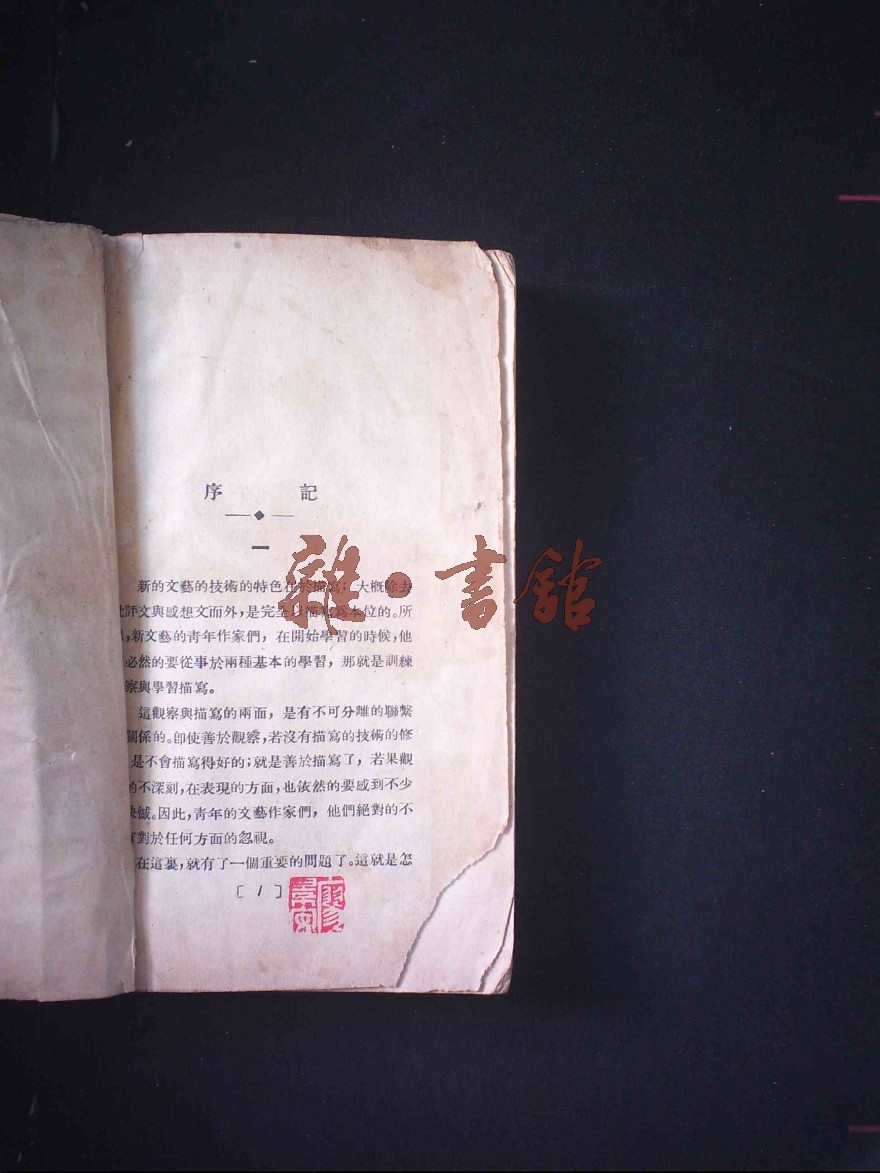 序 記
一
新的文藝的技術的特色在於描寫；大概除去
批評文與感想文而外，是完全以描寫爲本位的。所
，新文藝的靑年作家們，在開始學習的時候，他
必然的要從事於兩種基本的學習，那就是訓練
察與學習描寫。
這觀察與描寫的兩面，是有不可分離的聯繫
關係的。卽使善於觀察，若沒有描寫的技術的修
是不會描寫得好的；就是善於描寫了，若果觀
的不深刻，在表現的方面，也依然的要感到不少
缺憾。因此，靑年的文藝作家們，他們絕對的不
有對於任何方面的忽視。
在這裏，就有了一個重要的問題了。這就是怎
〔 1 〕
雜·書館